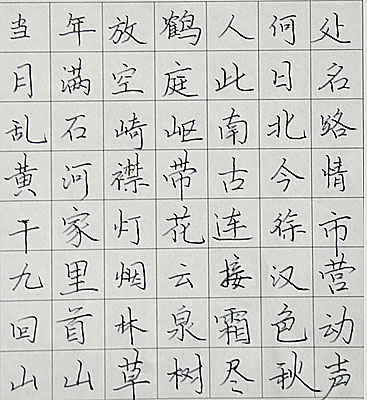 当年放鹤人何处
月满空庭此日名
乱石崎岖南北路
黄河襟带古今情
千家灯花连徐市
九里烟云接汉营
回首林泉霜色动
山山草树尽秋声